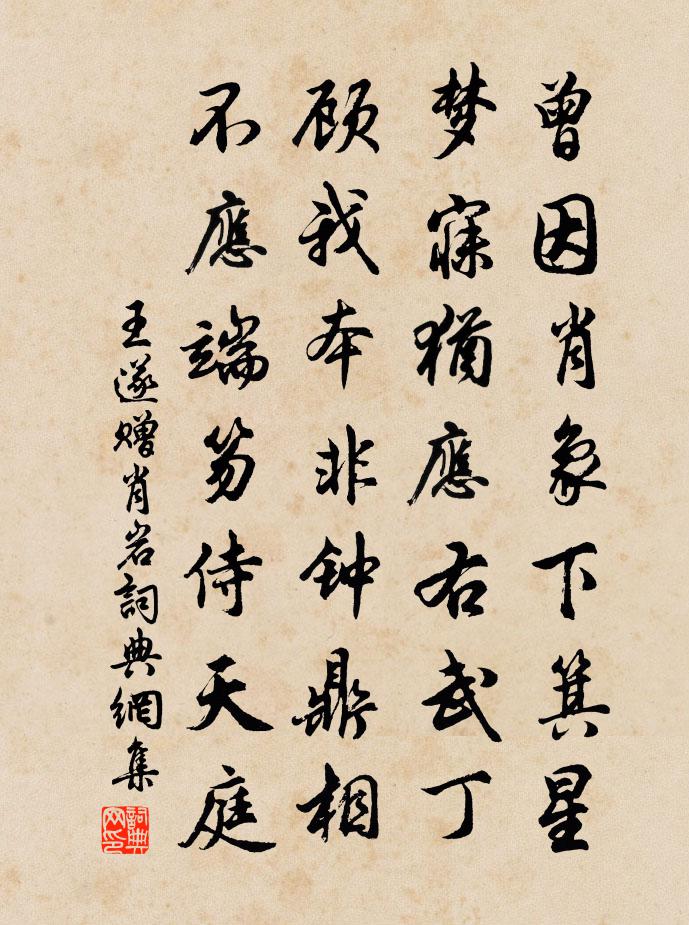 曾因肖象下箕星
梦寐猶應右武丁
顾我本非钟鼎相
不應端笏侍天庭
王遂赠肖岩詞典網集
詞典网印